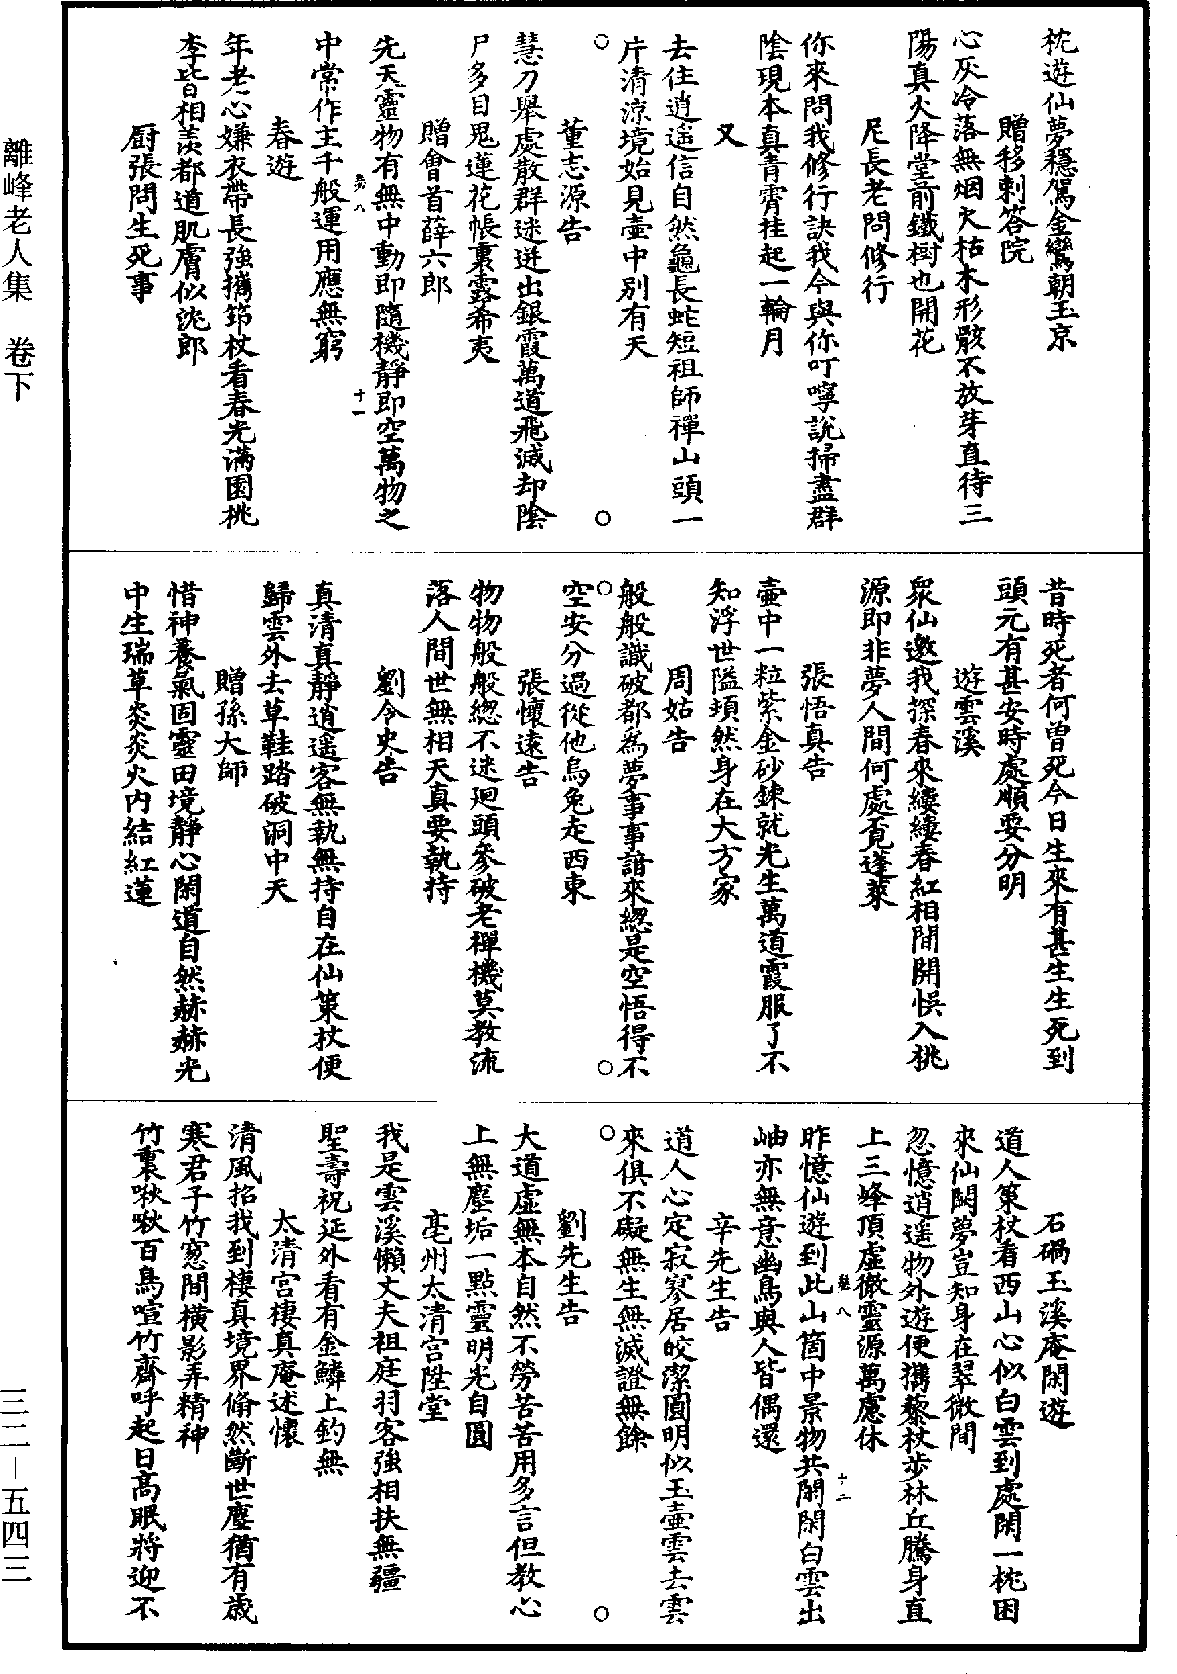 離峰老人集　卷下
枕遊仙夢穩駕金鸞朝玉京
贈移剌答院
心灰冷落無烟火枯木形骸不放芽直待三
陽真火降堂前鐵樹也開花
尼長老問修行
你來問我修行訣我今與你叮嚀說掃盡群
陰現本真青霄挂起一輪月
又
去住逍遙信自然龜長蛇短祖師禪山頭一
片清涼境始見壺中別有天
董志源告
慧刀舉處散群迷迸出銀霞萬道飛滅却陰
尸多目鬼蓮花帳裏露希夷
贈會首薛六郎
先天靈物有無中動即隨機靜即空萬物之
中常作主千般運用應無窮
春遊
年老心嫌衣帶長強攜筇杖看春光滿園桃
李皆相羨都道肌膚似沈郎
厨張問生死事
昔時死者何曾死今日生來有甚生生死到
頭元有甚安時處順要分明
遊雲溪
衆仙邀我探春來縷縷春紅相間開悞入桃
源即非夢人間何處覓蓬萊
張悟真告
壺中一粒紫金砂鍊就光生萬道霞服了不
知浮世隘頹然身在大方家
周姑告
般般識破都為夢事事諳來緫是空悟得不
空安分過從他烏兔走西東
張懷遠告
物物般般緫不迷廻頭參破老禪機莫教流
落人間世無相天真要執持
劉令史告
真清真靜逍遥客無執無持自在仙策杖便
歸雲外去草鞋踏破洞中天
贈孫大師
惜神養氣固靈田境靜心閑道自然赫赫光
中生瑞草炎炎火内結紅蓮
石碢玉溪庵閑遊
道人策杖看西山心似白雲到處閑一枕困
來仙闕夢豈知身在翠微間
忽憶逍遥物外遊便攜藜杖步林丘騰身直
上三峰頂虛徹靈源萬慮休
昨憶仙遊到此山箇中景物共閑閑白雲出
岫亦無意幽鳥與人皆偶還
辛先生告
道人心定寂寥居皎潔圓明似玉壺雲去雲
來俱不礙無生無滅證無餘
劉先生告
大道虛無本自然不勞苦苦用多言但教心
上無塵垢一點靈明光自圓
亳州太清宮陞堂
我是雲溪懶丈夫祖庭羽客強相扶無疆
聖壽祝延外看有金鱗上釣無
太清宮棲真庵述懷
清風招我到棲真境界翛然斷世塵猶有歲
寒君子竹窓間橫影弄精神
竹裏啾啾百鳥喧竹齋呼起日高眠將迎不
三二－五四三